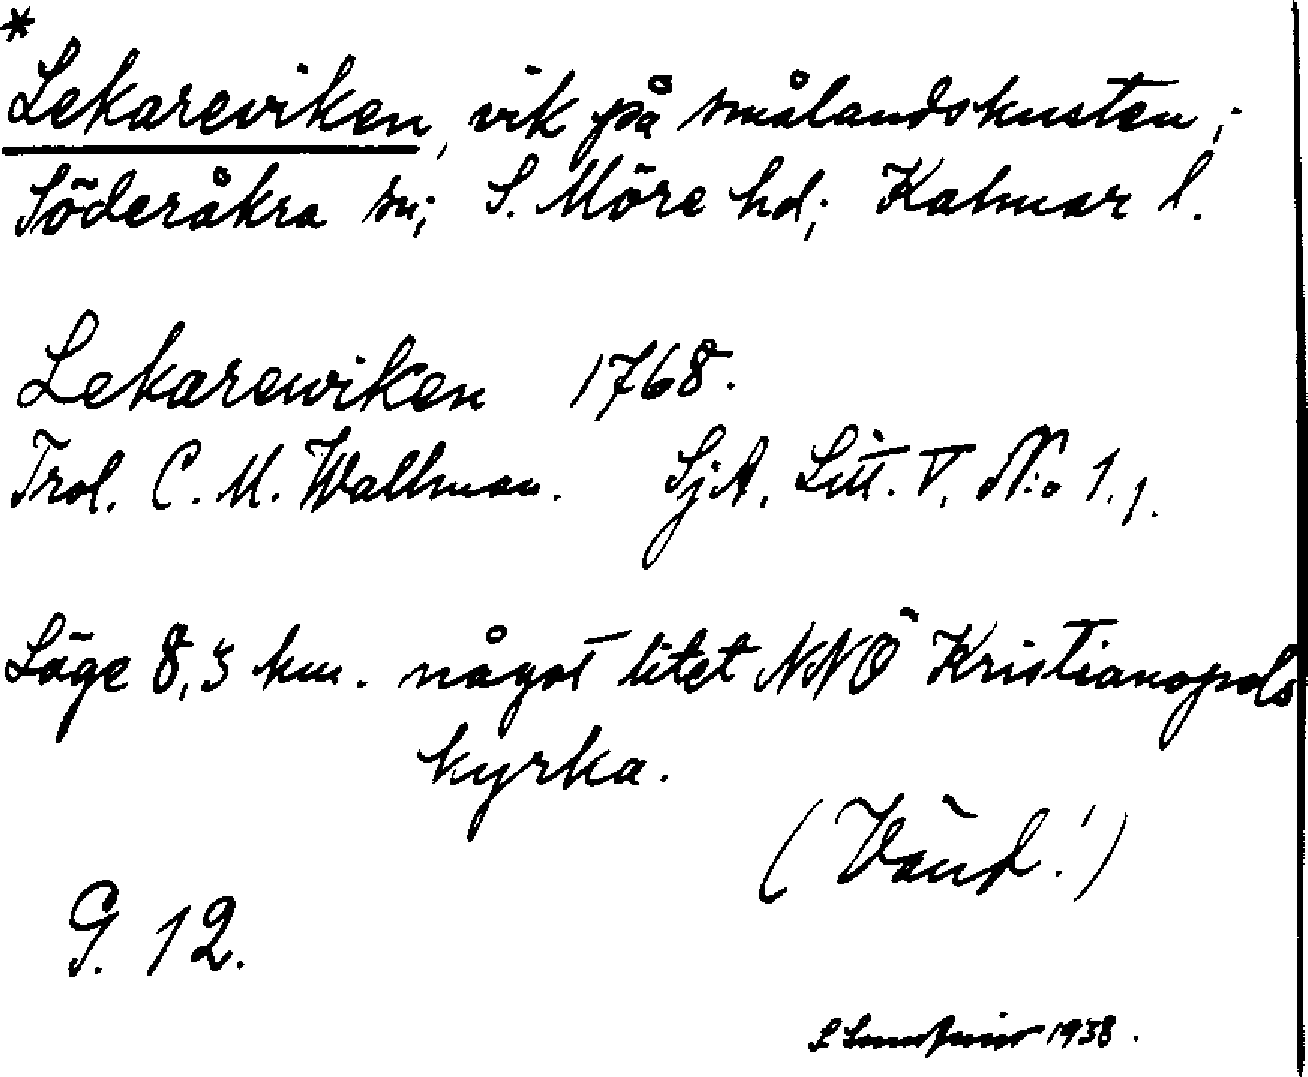 *
Lekareviken, vik på smålandskusten;
Söderåkra sn; S. Möre hd; Kalmar l.
Lekarewiken 1768.
Trol. C. M. Wallman. SjA. Litt. V. N:o 1.1.
Läge 8,3 km. något litet NNÖ Kristianopels
kyrka.
(Vänd!)
G. 12.
1938.